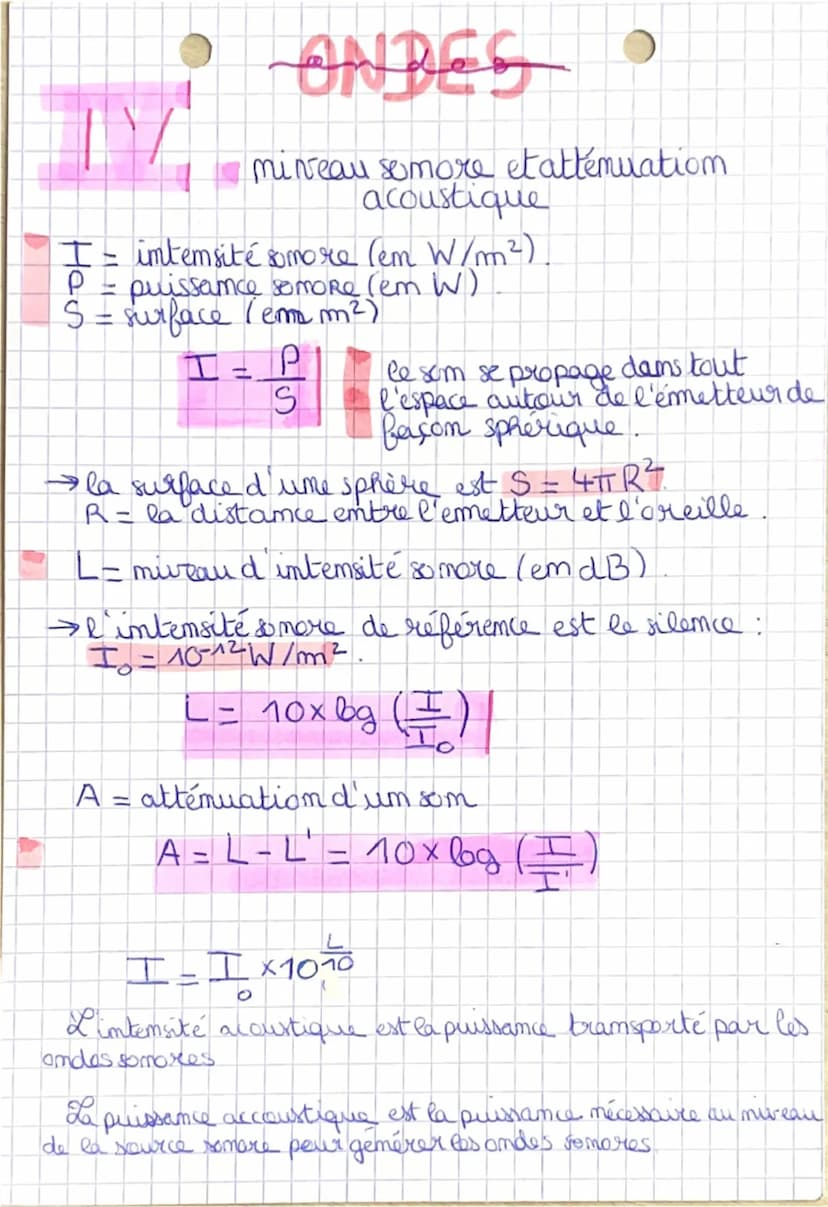 ONDES
ondes
IV. niveau sonore et atténuation
acoustique
I = intensité sonore (en W/m²).
P = puissance sonore (en W)
S = surface (en m²)
I = P/S
le son se propage dans tout
l'espace autour de l'émetteur de
façon sphérique.
→ la surface d'une sphère est S = 4πR².
R = la distance entre l'emetteur et l'oreille.
L = niveau d'intensité sonore (en dB).
→ l'intensité sonore de référence est le silence :
I₀ = 10⁻¹² W/m².
L = 10 × log (I/I₀)
A = atténuation d'un son
A = L - L' = 10 × log (I/I')
I = I₀ × 10^(L/10)
L'intensité acoustique est la puissance transporté par les
ondes sonores
La puissance accoustique est la puissance nécessaire au niveau
de la source sonore pour générer les ondes sonores.